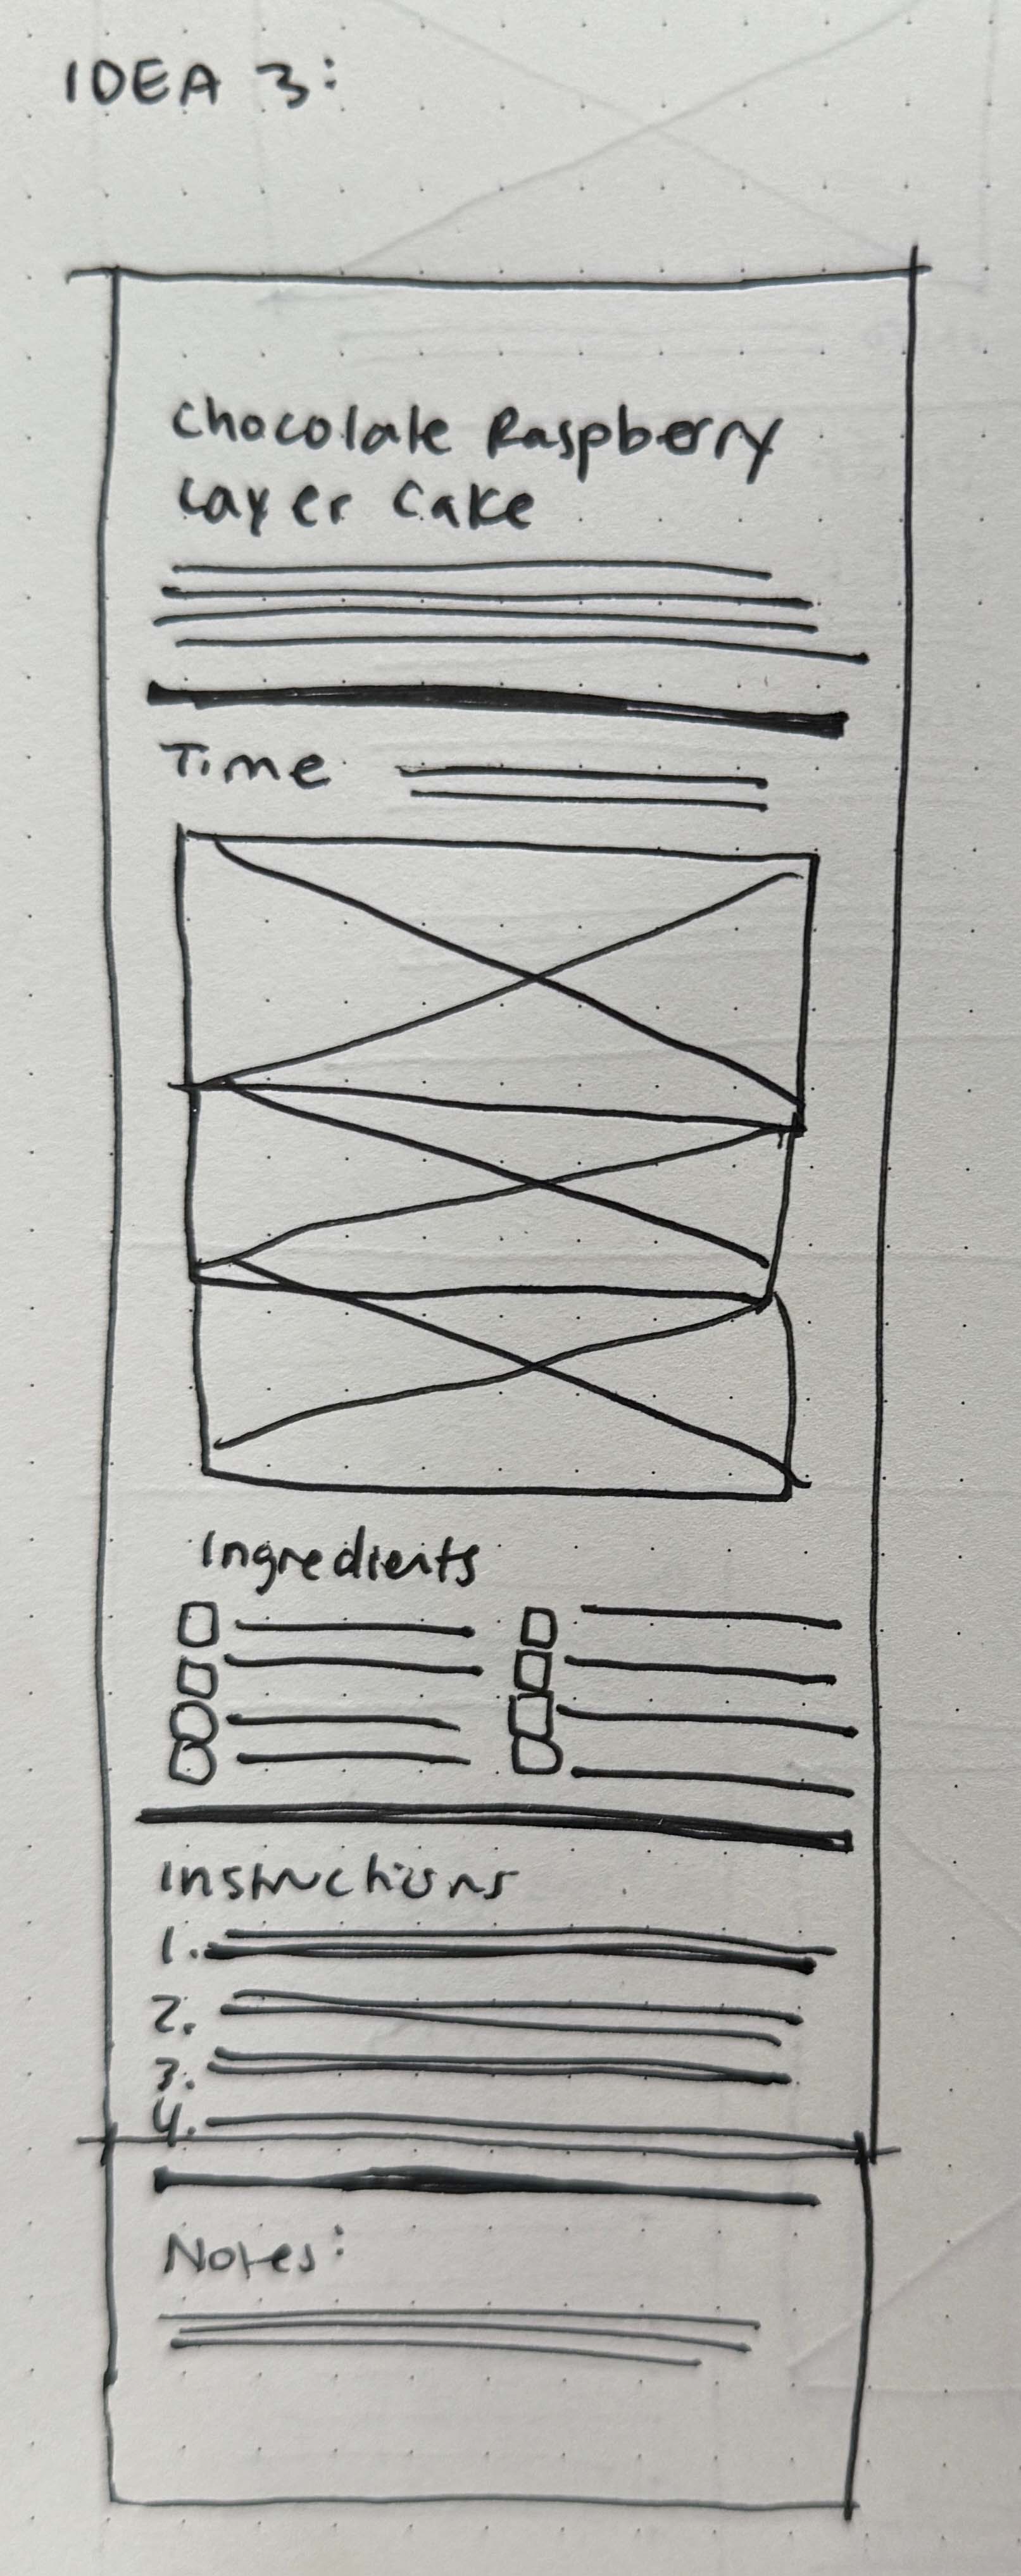 IDEA 3:
Chocolate Raspberry
Layer Cake
Time
Ingredients
Instructions
1.
2.
3.
4.
Notes: